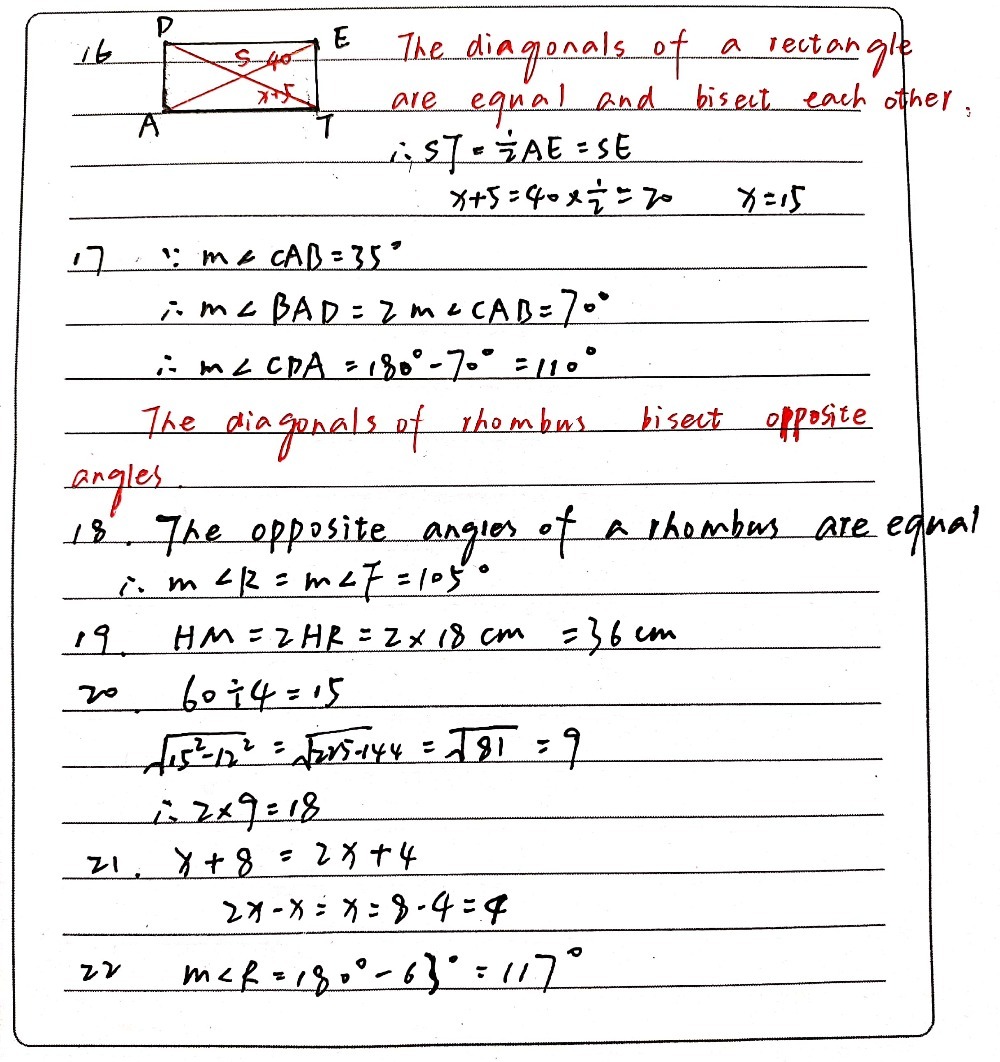 16 D E The diagonals of a rectangle
S 40
x+5 are equal and bisect each other.
A T
∴ ST = ½AE = SE
x+5 = 40 × ½ = 20 x = 15
17 ∵ m∠CAB = 35°
∴ m∠BAD = 2m∠CAB = 70°
∴ m∠CDA = 180° - 70° = 110°
The diagonals of rhombus bisect opposite
angles.
18. The opposite angles of a rhombus are equal
∴ m∠R = m∠F = 105°
19. HM = 2HR = 2 × 18 cm = 36 cm
20. 60 ÷ 4 = 15
√15²-12² = √225-144 = √81 = 9
∴ 2×9 = 18
21. x + 8 = 2x + 4
2x - x = x = 8 - 4 = 4
22 m∠R = 180° - 63° = 117°